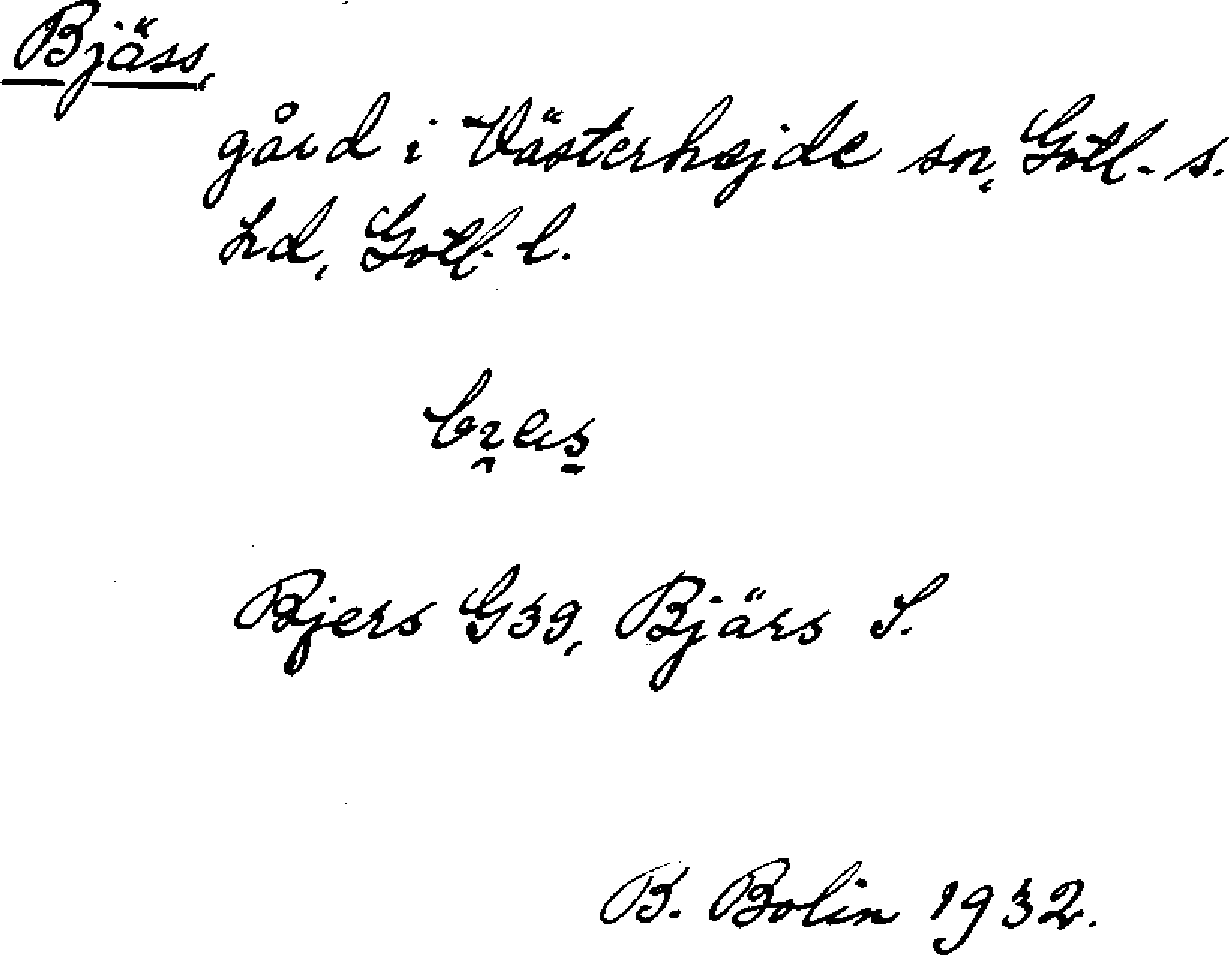 Bjäss,
gård i Västerhejde sn, Gotl. s.
hd, Gotl. l.
Bjers G39, Bjärs S.
B. Bolin 1932.